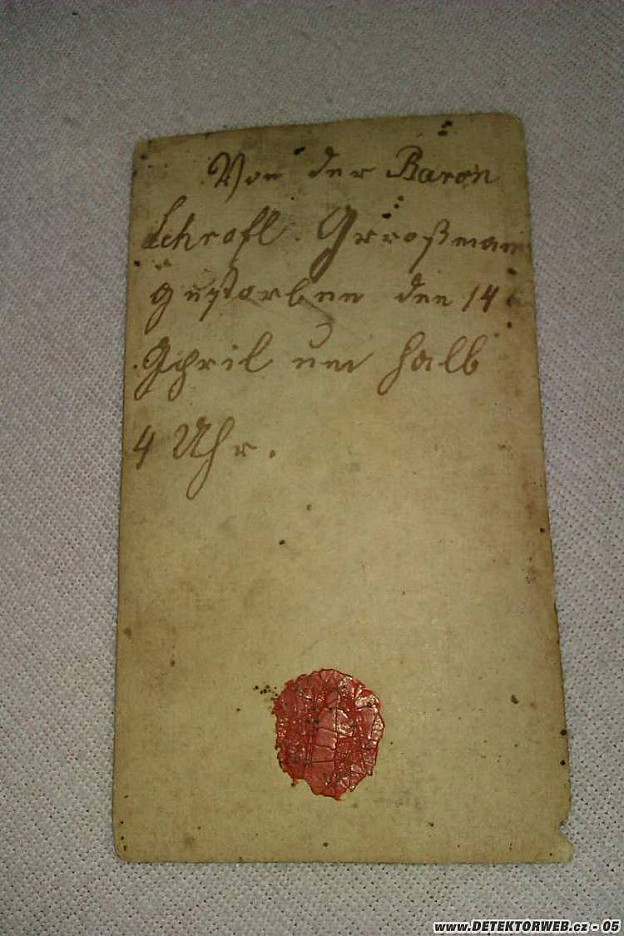 Von der Baron
Schrofl. Grroßman
gestorben den 14
April um halb
4 Uhr.
www.DETEKTORWEB.cz - 05